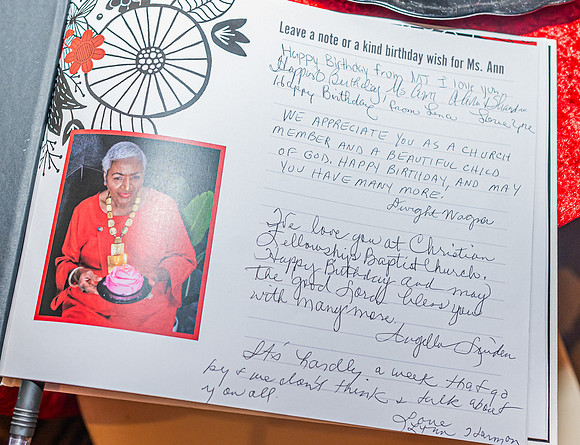 Leave a note or a kind birthday wish for Ms. Ann
Happy Birthday from I love you
Happy Birthday Ms Ann,
Happy Birthday from
WE APPRECIATE YOU AS A CHURCH
MEMBER AND A BEAUTIFUL CHILD
OF GOD. HAPPY BIRTHDAY, AND MAY
YOU HAVE MANY MORE.
Dwight Wagner
We love you at Christian
Fellowship Baptist Church.
Happy Birthday and may
the good Lord bless you
with many more.
Angella
It's hardly a week that go
by & we don't think & talk about
y'on all.
Love